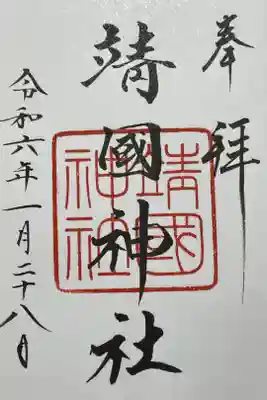 奉拝
靖國神社
靖國神社
令和六年一月二十八日